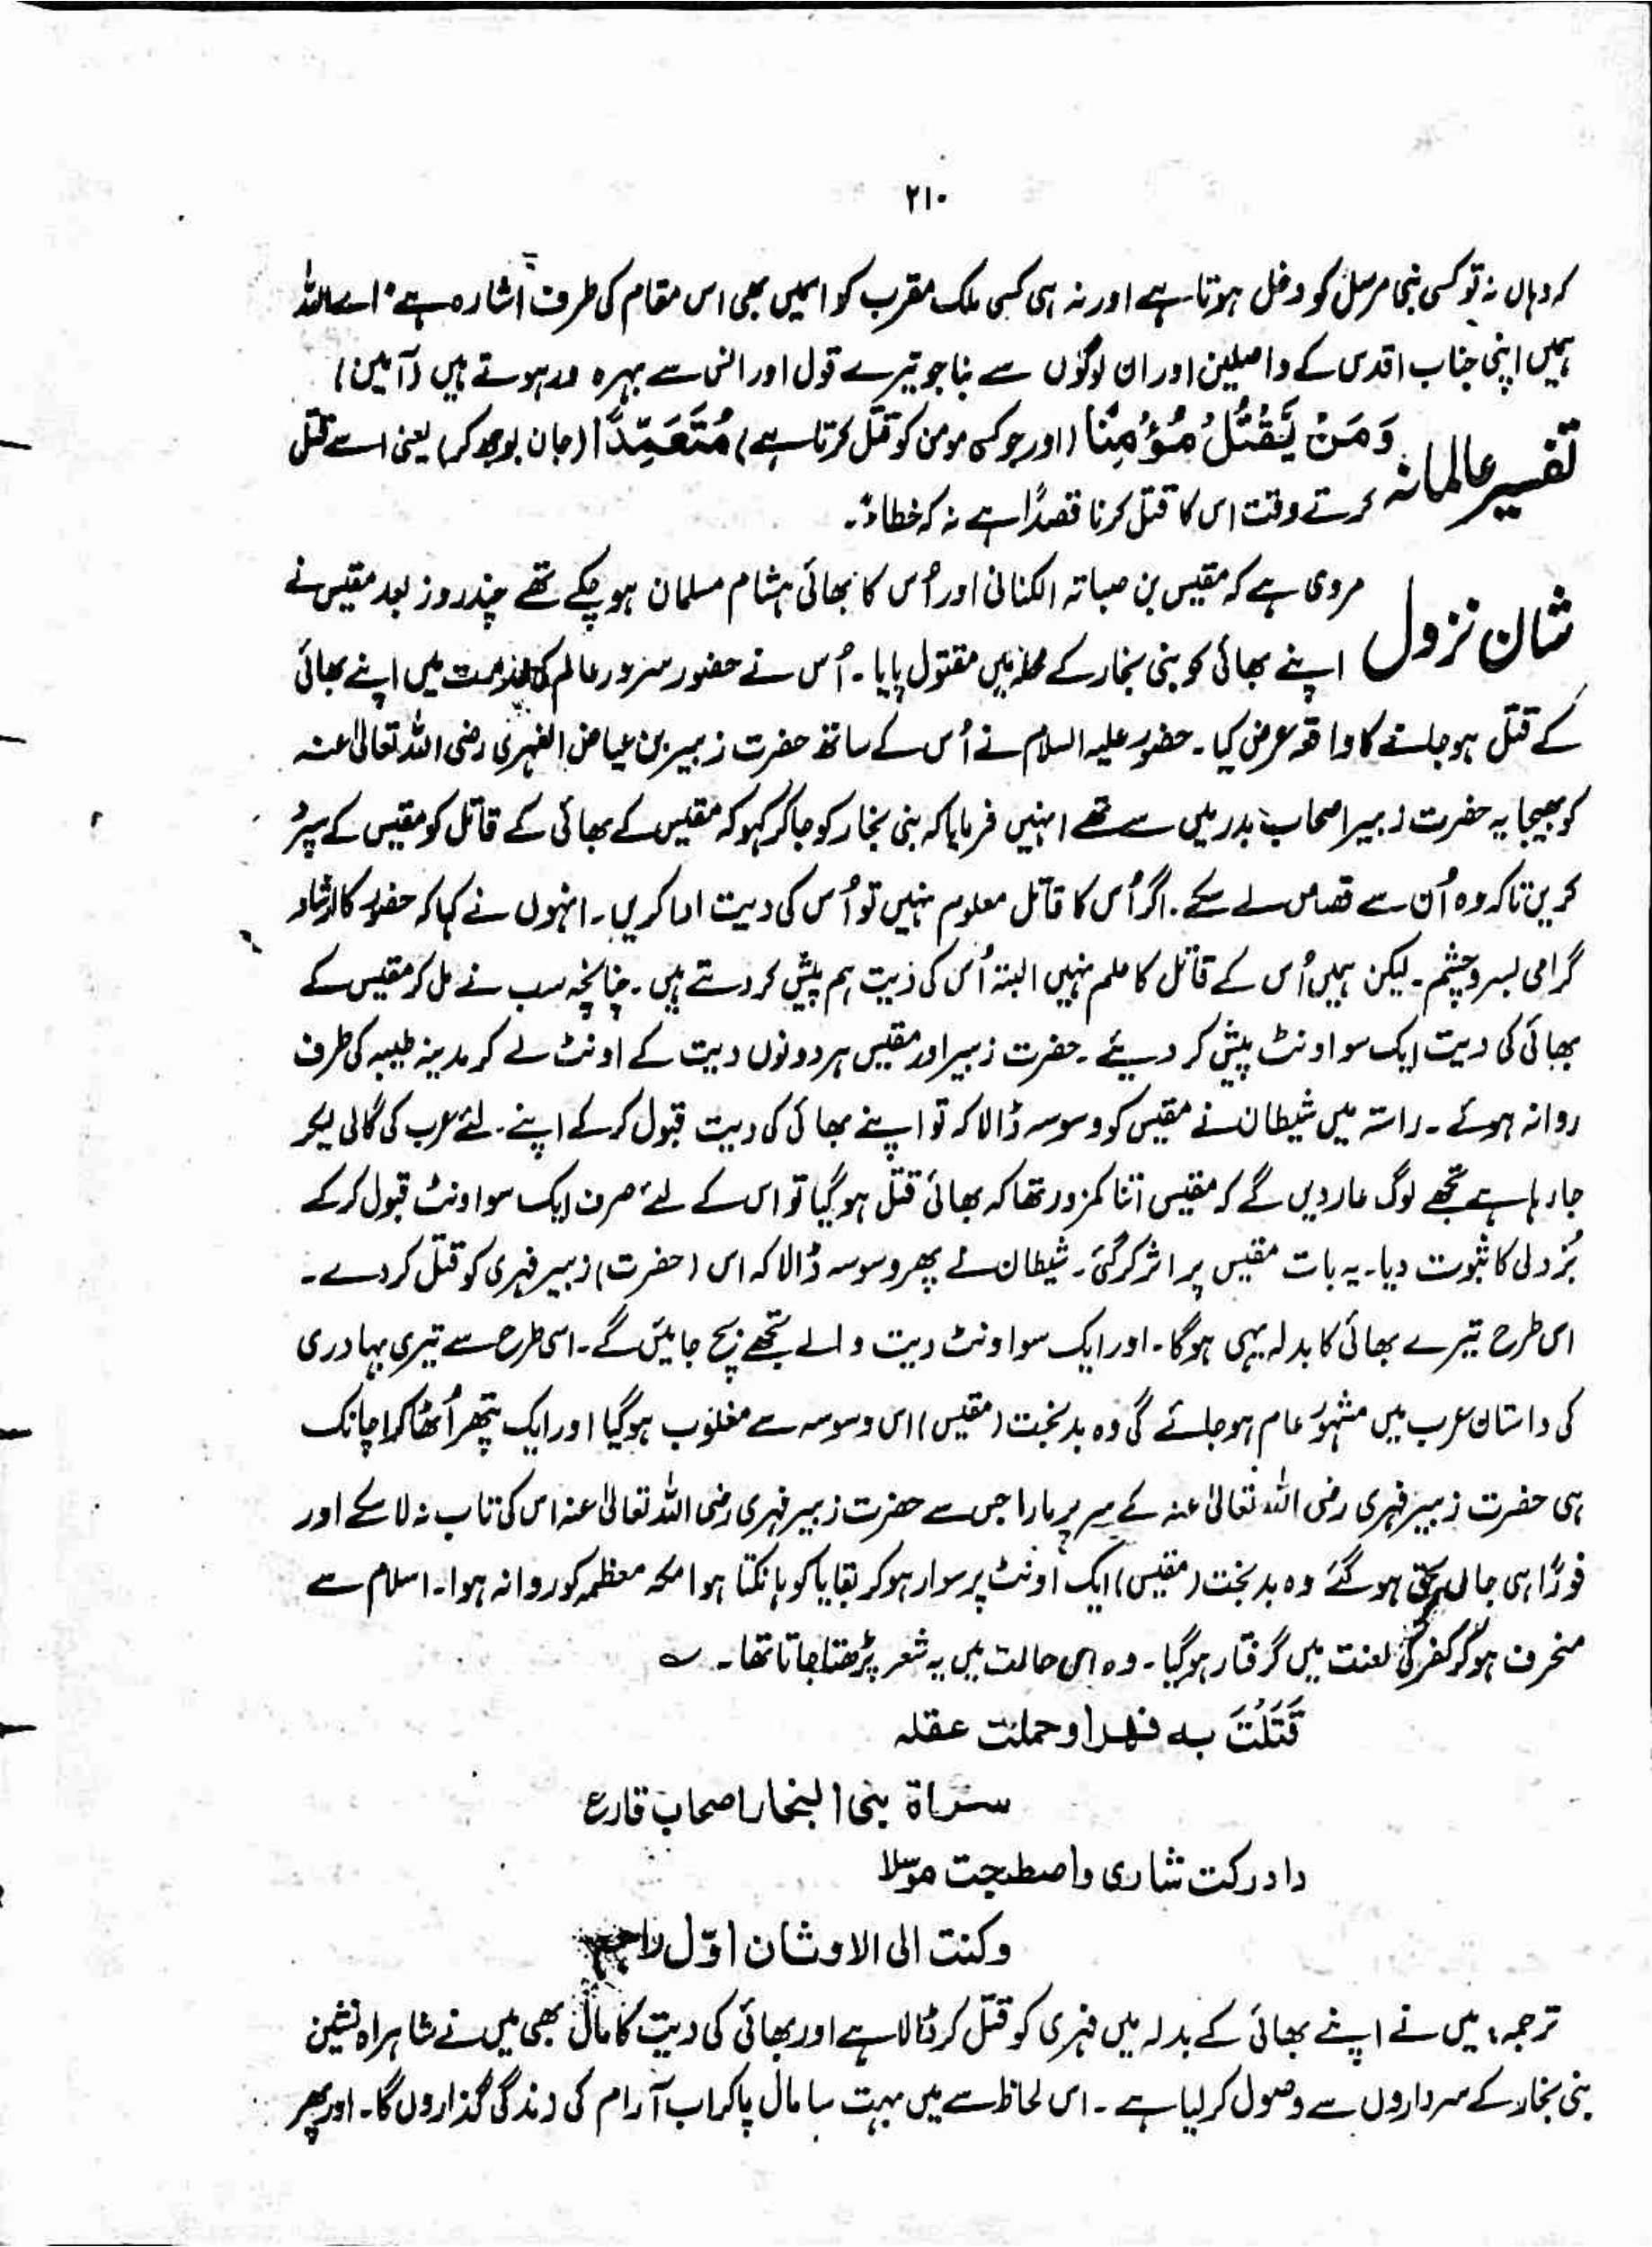 ۲۱۰
کہ وہاں نہ تو کسی نبی مرسل کو دخل ہوتا ہے اور نہ ہی کسی ملک مقرب کو اسمیں بھی اس مقام کی طرف اشارہ ہے اے اللہ
ہمیں اپنی جناب اقدس کے واصلین اور ان لوگوں سے بنا جو تیرے قول اور انس سے بہرہ ور ہوتے ہیں (آمین)
تفسیر عالمانہ وَمَنْ يَّقْتُلُ مُؤْمِنًا (اور جو کسی مومن کو قتل کرتا ہے) مُتَعَمِّدًا (جان بوجھ کر) یعنی اسے قتل
کرتے وقت اس کا قتل کرنا قصدًا ہے نہ کہ خطاءً۔
شان نزول مروی ہے کہ مقیس بن صبابہ الکنانی اور اُس کا بھائی ہشام مسلمان ہو چکے تھے چند روز بعد مقیس نے
اپنے بھائی کو بنی نجار کے محلہ میں مقتول پایا۔ اُس نے حضور سرور عالم کی خدمت میں اپنے بھائی
کے قتل ہو جانے کا واقعہ عرض کیا۔ حضور علیہ السلام نے اُس کے ساتھ حضرت زبیر بن عیاض الفہری رضی اللہ تعالیٰ عنہ
کو بھیجا یہ حضرت زبیر اصحاب بدر میں سے تھے انہیں فرمایا کہ بنی نجار کو جا کر کہو کہ مقیس کے بھائی کے قاتل کو مقیس کے سپرد
کریں تاکہ وہ اُن سے قصاص لے سکے۔ اگر اُس کا قاتل معلوم نہیں تو اُس کی دیت ادا کریں۔ انہوں نے کہا کہ حضور کا ارشاد
گرامی بسر و چشم۔ لیکن ہمیں اُس کے قاتل کا علم نہیں البتہ اُس کی دیت ہم پیش کر دیتے ہیں۔ چنانچہ سب نے مل کر مقیس کے
بھائی کی دیت ایک سو اونٹ پیش کر دیئے۔ حضرت زبیر اور مقیس ہر دونوں دیت کے اونٹ لے کر مدینہ طیبہ کی طرف
روانہ ہوئے۔ راستہ میں شیطان نے مقیس کو وسوسہ ڈالا کہ تو اپنے بھائی کی دیت قبول کرکے اپنے۔ لئے عرب کی گالی لیکر
جا رہا ہے تجھے لوگ عار دیں گے کہ مقیس اتنا کمزور تھا کہ بھائی قتل ہو گیا تو اس کے لئے صرف ایک سو اونٹ قبول کرکے
بُزدلی کا ثبوت دیا۔ یہ بات مقیس پر اثر کر گئی۔ شیطان نے پھر وسوسہ ڈالا کہ اس (حضرت) زبیر فہری کو قتل کر دے۔
اس طرح تیرے بھائی کا بدلہ یہی ہو گا۔ اور ایک سو اونٹ دیت والے تجھے بچ جائیں گے۔ اسی طرح سے تیری بہادری
کی داستان عرب میں مشہور عام ہو جائے گی وہ بدبخت (مقیس) اس وسوسہ سے مغلوب ہو گیا اور ایک پتھر اُٹھا کر اچانک
ہی حضرت زبیر فہری رضی اللہ تعالیٰ عنہ کے سر پر مارا جس سے حضرت زبیر فہری رضی اللہ تعالیٰ عنہ اس کی تاب نہ لا سکے اور
فورًا ہی جاں بحق ہو گئے وہ بدبخت (مقیس) ایک اونٹ پر سوار ہو کر بقایا کو ہانکتا ہوا مکہ معظمہ کو روانہ ہوا۔ اسلام سے
منحرف ہو کر کفر کی لعنت میں گرفتار ہو گیا۔ وہ اس حالت میں یہ شعر پڑھتا جاتا تھا۔ ؎
قَتَلْتَ بہ فہرا وحملت عقلہ
سراۃ بنی النجار اصحاب قارع
دادرکت شاری واصطجت موسلا
وکنت الی الاوثان اوّل راجع
ترجمہ: میں نے اپنے بھائی کے بدلہ میں فہری کو قتل کر ڈالا ہے اور بھائی کی دیت کا مال بھی میں نے شاہراہ نشین
بنی نجار کے سرداروں سے وصول کر لیا ہے۔ اس لحاظ سے میں بہت سا مال پا کر اب آرام کی زندگی گذاروں گا۔ اور پھر